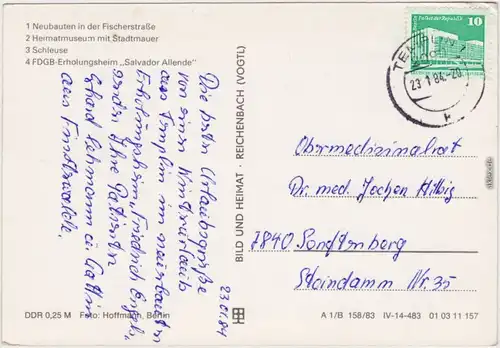 1 Neubauten in der Fischerstraße
2 Heimatmuseum mit Stadtmauer
3 Schleuse
4 FDGB-Erholungsheim „Salvador Allende"
10
23.1.84-20
Die besten Urlaubsgrüße
von einem Winterurlaub
aus Templin im neuerbauten
Erholungsheim „Friedrich Engels"
senden Ihre Patienten
Erhard Lehmann u. Gattin
aus Finsterwalde.
23.01.84
BILD UND HEIMAT · REICHENBACH (VOGTL)
Obermedizinalrat
Dr. med. Jochen Hilbig
7840 Senftenberg
Steindamm Nr. 35
DDR 0,25 M Foto: Hoffmann, Berlin
A 1/B 158/83 IV-14-483 01 03 11 157